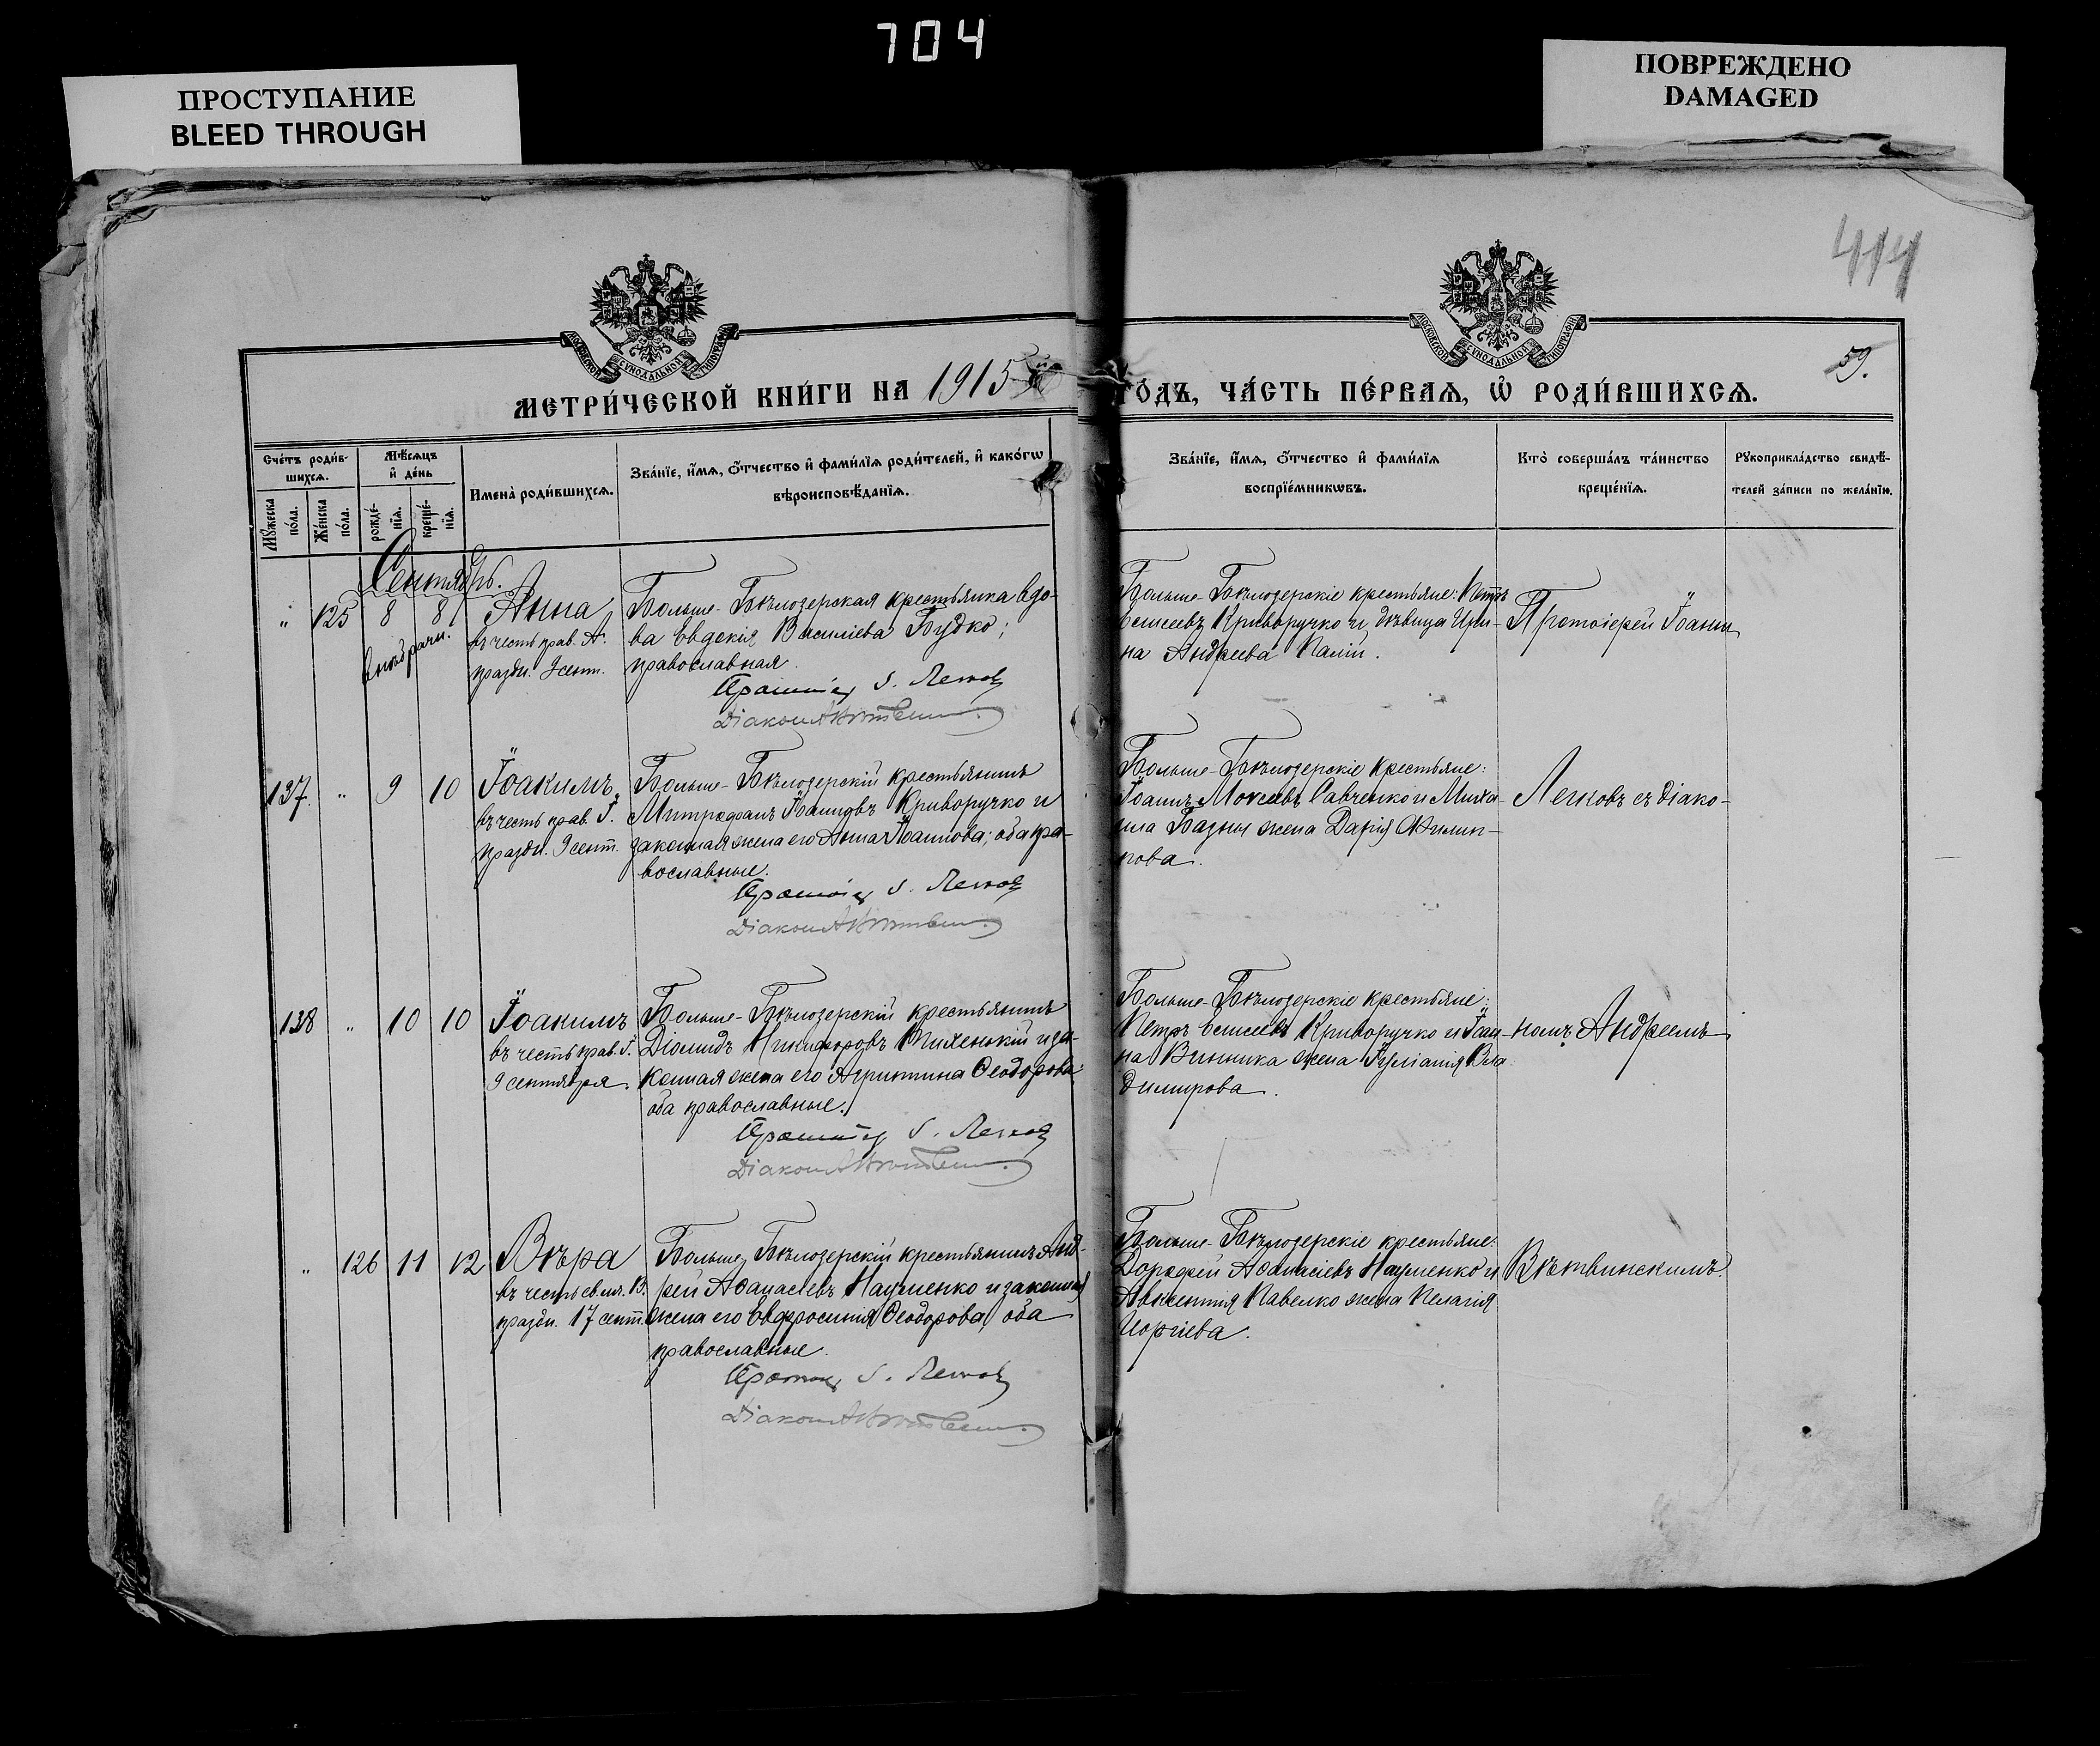 704
ПРОСТУПАНИЕ
BLEED THROUGH
ПОВРЕЖДЕНО
DAMAGED
414
59.
МОСКОВСКОЙ СѴНОДАЛЬНОЙ ТИПОГРАФІИ
МОСКОВСКОЙ СѴНОДАЛЬНОЙ ТИПОГРАФІИ
МЕТРИ́ЧЕСКОЙ КНИ́ГИ НА 1915
ГО́ДЪ, ЧА́СТЬ ПЕ́РВАѦ, Ѡ҆ РОДИ́ВШИХСѦ.
Сче́тъ роди́в-
шихсѧ.
Мꙋ́жеска по́ла.
Же́нска по́ла.
Мѣ́сѧцъ
и҆ де́нь
рожде́-
нїѧ.
креще́-
нїѧ.
И҆мена̀ роди́вшихсѧ.
Зва́нїе, и҆́мѧ, ѻ҆́тчество и҆ фами́лїѧ роди́телей, и҆ како́гѡ
вѣроисповѣ́данїѧ.
Зва́нїе, и҆́мѧ, ѻ҆́тчество и҆ фами́лїѧ
воспрїе́мникѡвъ.
Кто̀ соверша́лъ та́инство
креще́нїѧ.
Рꙋкоприкла́дство свидѣ́-
телей за́писи по жела́нїю.
Сентябрь.
" 125 8 8
внѣбрачн.
Анна
въ честь прав. А.
праздн. 9 сент.
Больше-Бѣлозерская крестьянка вдо-
ва Евдокія Василіева Будко;
православная.
Протоіер. І. Легков
Діакон А Вѣтвин
Больше-Бѣлозерскіе крестьяне: Петръ
Елисеевъ Криворучко и дѣвица Ири-
на Андреева Палій.
Протоіерей Іоанн
137. " 9 10
Іоакимъ
въ честь прав. І.
праздн. 9 сент.
Больше-Бѣлозерскій крестьянинъ
Митрофанъ Іоанновъ Криворучко и
законная жена его Анна Іоаннова; оба пра-
вославные.
Протоіер. І. Легков
Діакон А Вѣтвин
Больше-Бѣлозерскіе крестьяне:
Іоаннъ Моѵсеевъ Савченко и Миха-
ила жена Дарія Филип-
пова.
Легковъ съ діако-
138 " 10 10
Іоакимъ
въ честь прав. І.
9 сентября.
Больше-Бѣлозерскій крестьянинъ
Діомидъ Никифоровъ Тихенькій и за-
конная жена его Агриппина Ѳеодорова;
оба православные.
Протоіер. І. Легков
Діакон А Вѣтвин
Больше-Бѣлозерскіе крестьяне:
Петръ Елисеевъ Криворучко и Іоан-
на Винника жена Іуліанія Вла-
димирова.
номъ Андреемъ
" 126 11 12
Вѣра
въ честь св. мч. В.
праздн. 17 сент.
Больше-Бѣлозерскій крестьянинъ Анд-
рей Аѳанасіевъ Науменко и законная
жена его Евфросинія Ѳеодорова, оба
православные.
Протоіер. І. Легков
Діакон А Вѣтвин
Больше-Бѣлозерскіе крестьяне:
Дороѳей Аѳанасіевъ Науменко и
Авксентія Павелко жена Пелагія
Георгіева.
Вѣтвинскимъ.